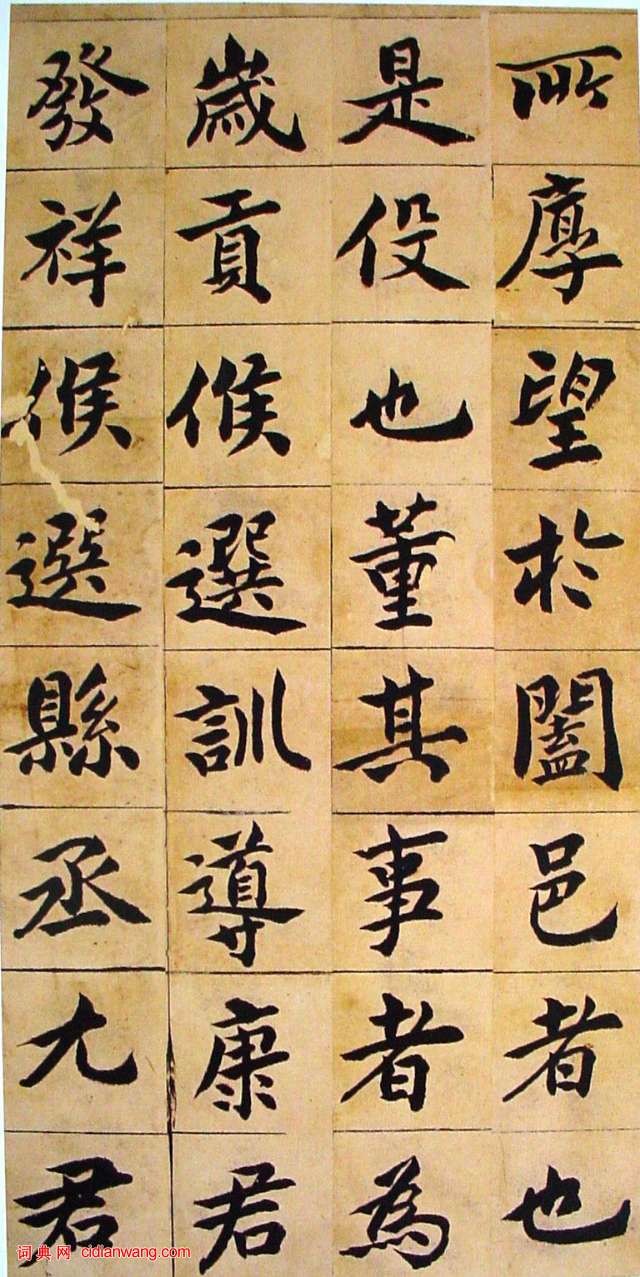 所厚望於闔邑者也
是役也董其事者為
歲貢候選訓導康君
發祥候選縣丞尤君
词典网 cidianwang.com